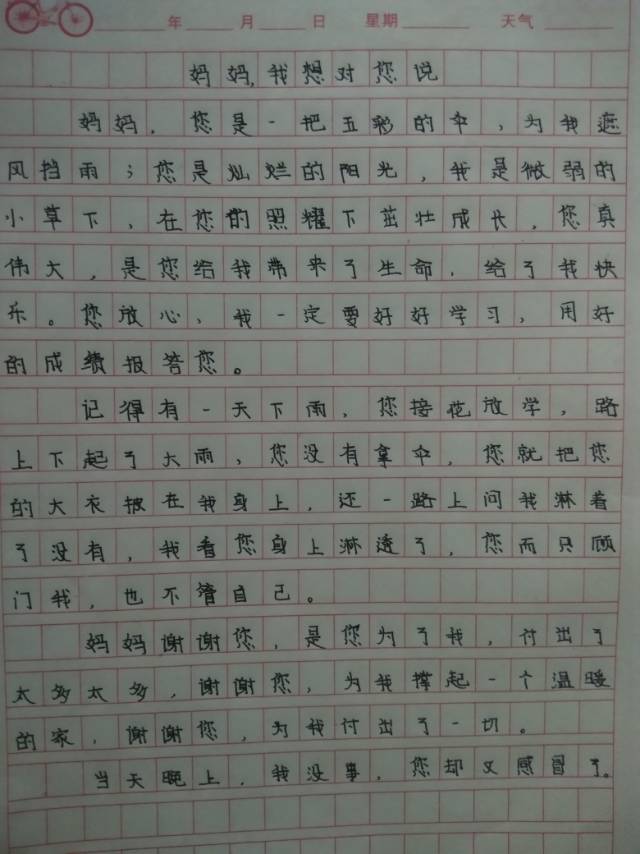 年 月 日 星期 天气
妈妈,我想对您说
妈妈,您是一把五彩的伞,为我遮
风挡雨;您是灿烂的阳光,我是微弱的
小草下,在您的照耀下茁壮成长,您真
伟大,是您给我带来了生命,给了我快
乐。您放心、我一定要好好学习,用好
的成绩报答您。
记得有一天下雨,您接花放学,路
上下起了大雨、您没有拿伞,您就把您
的大衣披在我身上,还一路上问我淋着
了没有,我看您身上淋透了,您而只顾
门我,也不管自己。
妈妈谢谢您,是您为了我,付出了
太多太多,谢谢您,为我撑起一个温暖
的家,谢谢您,为我付出了一切。
当天晚上,我没事,您却又感冒了。